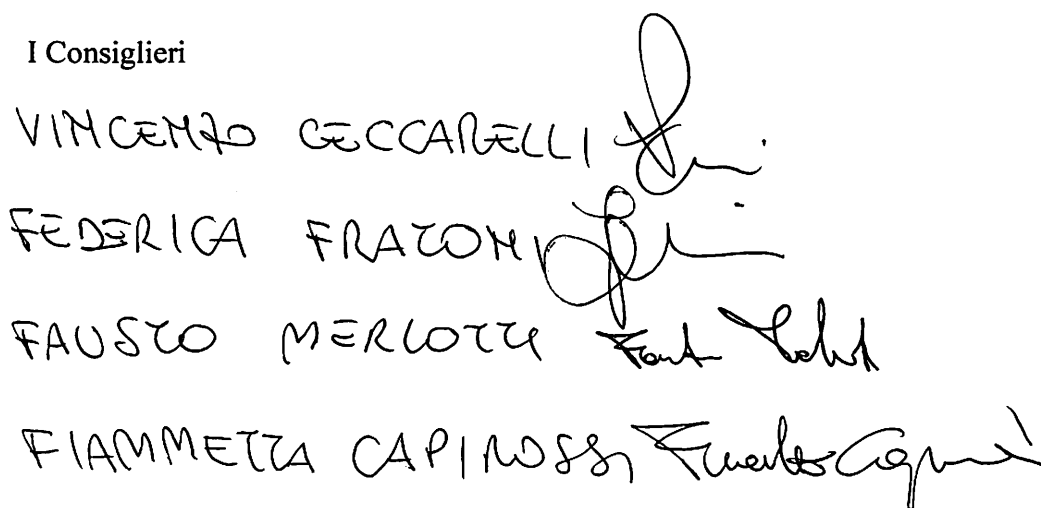 I Consiglieri
VINCENZO CECCARELLI
FEDERICA FRATONI
FAUSTO MERLOTTI
FIAMMETTA CAPIROSSI